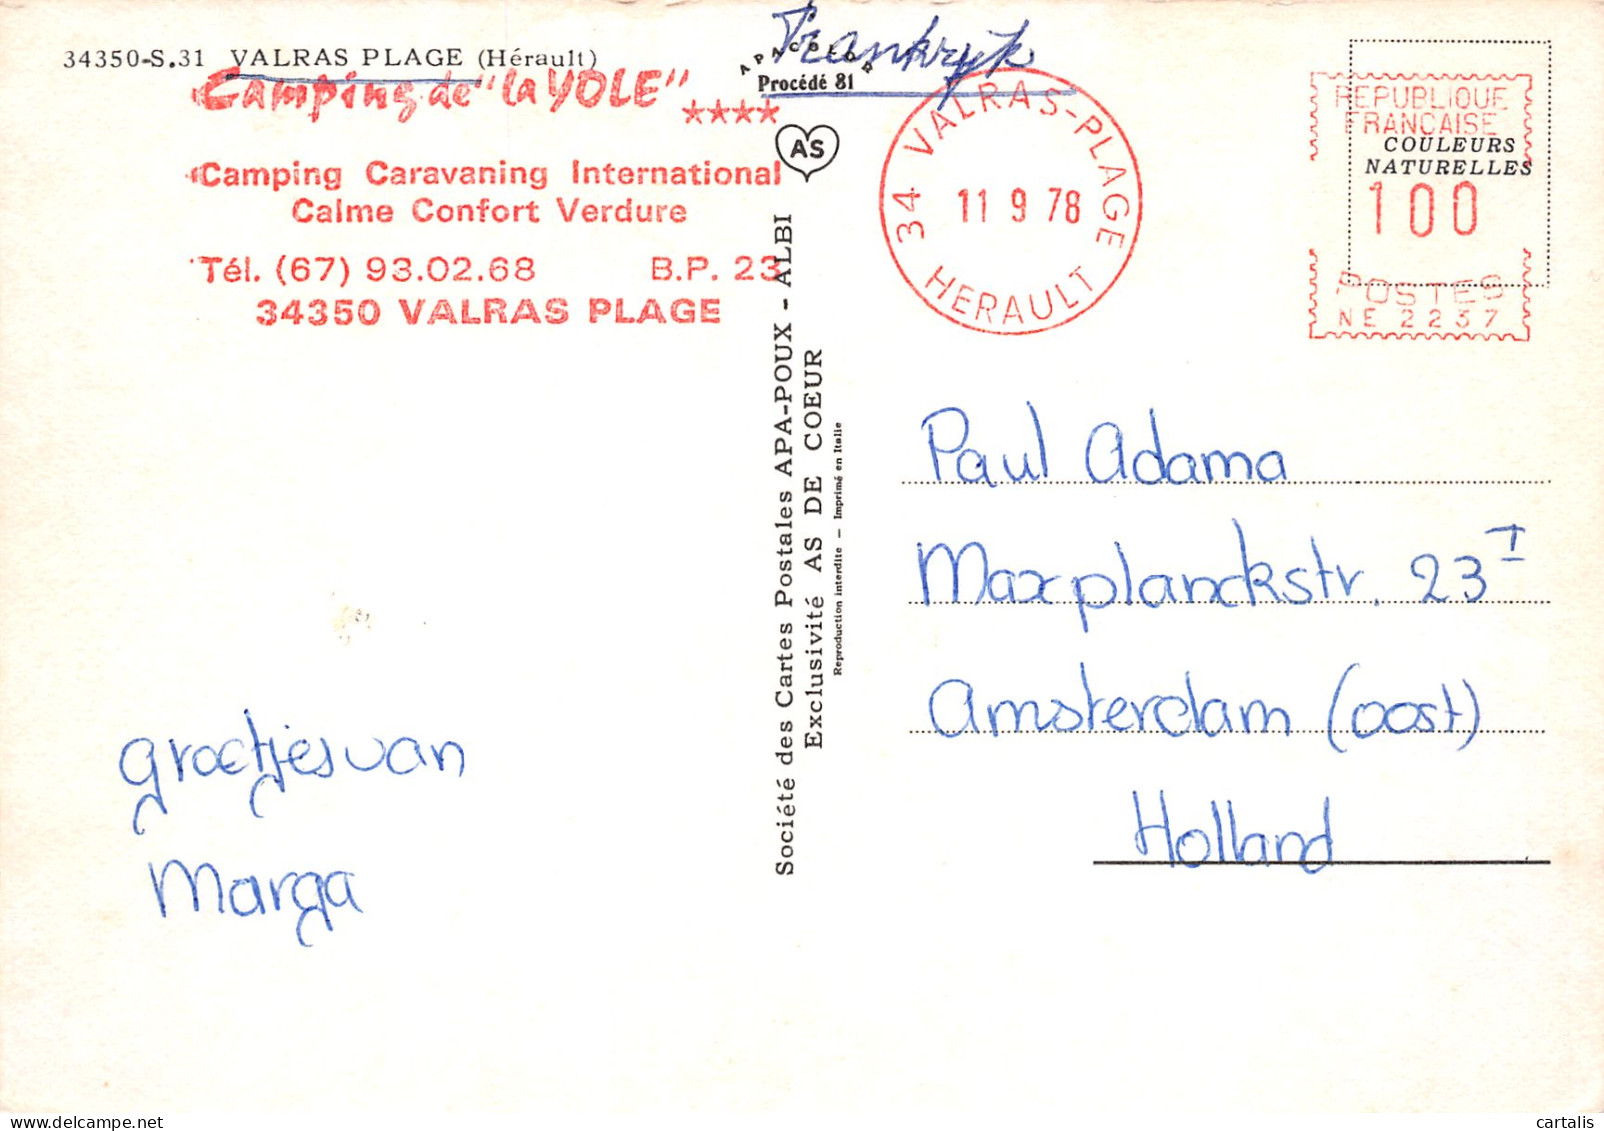 34350-S.31 VALRAS PLAGE (Hérault)
Frankrijk
APACOLOR
Procédé 81
Camping de "la YOLE" ****
Camping Caravaning International
Calme Confort Verdure
Tél. (67) 93.02.68 B.P. 23
34350 VALRAS PLAGE
AS
34 VALRAS-PLAGE
11 9 78
HERAULT
REPUBLIQUE
FRANCAISE
COULEURS
NATURELLES
100
POSTES
NE 2237
Société des Cartes Postales APA-POUX - ALBI
Exclusivité AS DE COEUR
Reproduction interdite — Imprimé en Italie
Paul Adama
Maxplanckstr. 23 I
Amsterdam (oost)
Holland
groetjes van
Marga
cartalis
www.delcampe.net